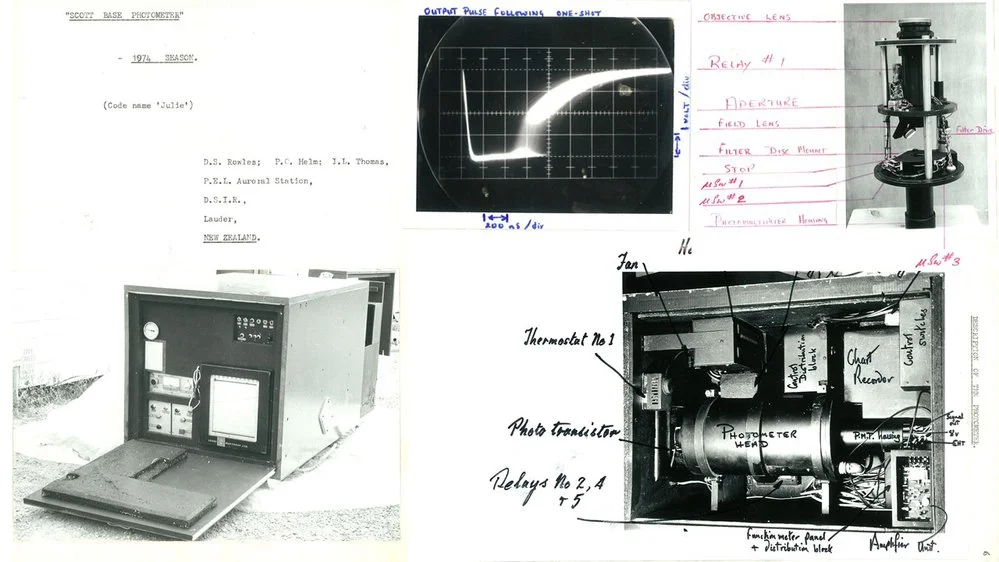 "SCOTT BASE PHOTOMETER"
- 1974 SEASON.
(Code name 'Julie')
D.S. Rowles; P.C. Helm; I.L. Thomas,
P.E.L. Auroral Station,
D.S.I.R.,
Lauder,
NEW ZEALAND.
OUTPUT PULSE FOLLOWING ONE-SHOT
1 VOLT/div
200 ns/div
OBJECTIVE LENS
RELAY #1
APERTURE
FIELD LENS
FILTER DISC MOUNT
STOP
μSW #1
μSW #2
PHOTOMULTIPLIER HOUSING
Filter Drive
μSW #3
Fan
Thermostat No 1
Photo transistor
Relays No 2, 4
+ 5
Control
Distribution
block
Chart
Recorder
Control
switches
PHOTOMETER
HEAD
P.M.T. Housing
Signal
out
EHT
+ distribution block
Amplifier Unit.
DESCRIPTION OF THE PHOTOMETER.